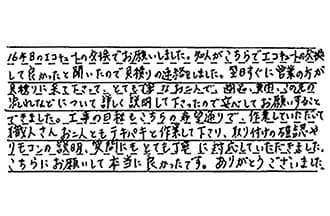 16年目のエコキュートの交換でお願いしました。知人がこちらでエコキュートの交換
して良かったと聞いたので見積りの連絡をしました。翌日すぐに営業の方が
見積りに来て下さって、とても丁寧なお二人で、商品、費用、工事の
流れなどについて詳しく説明して下さったので安心してお願いすることが
できました。工事の日程もこちらの希望通りで、作業していただいた
職人さんお二人ともテキパキと作業して下さり、取り付けの確認や
リモコンの説明、質問にもとても丁寧に対応していただきました。
こちらにお願いして本当に良かったです。ありがとうございました